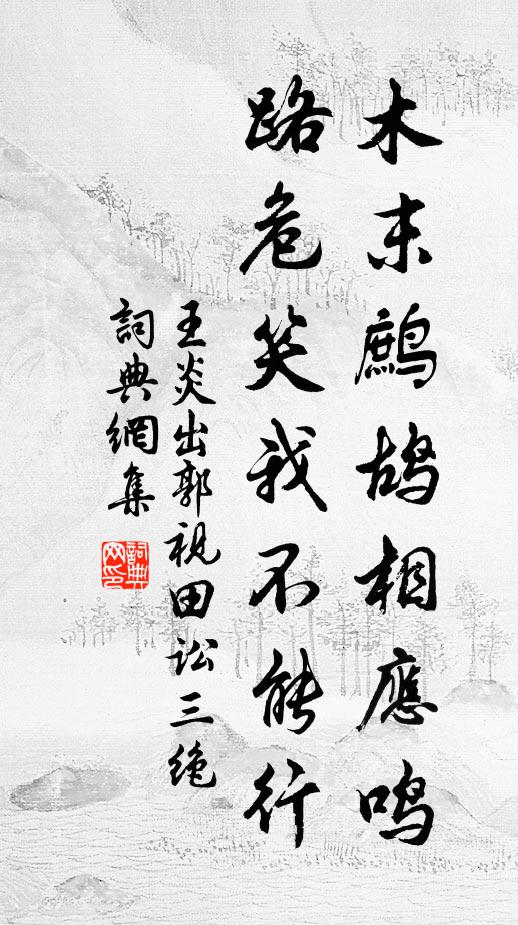 木末鹧鸪相應鸣
路危笑我不能行
王炎出郭视田讼三绝
詞典網集
詞典網印